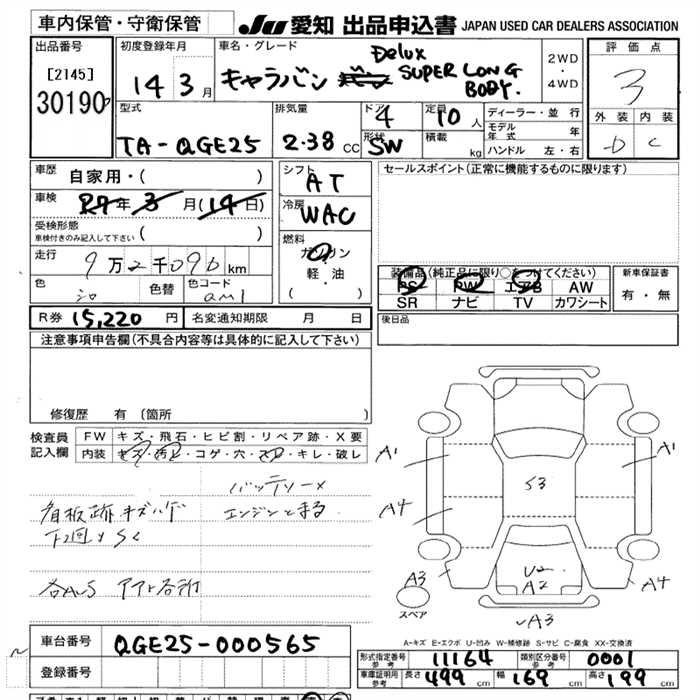 車内保管・守衛保管
JU 愛知 出品申込書 JAPAN USED CAR DEALERS ASSOCIATION
出品番号
[2145]
30190
初度登録年月
14 3月
車名・グレード
キャラバン
Delux
SUPER LONG
BODY.
2WD
・
4WD
評価点
3
外装 内装
D C
型式
TA-QGE25
排気量
2.38 CC
ドア
4
形状
SW
定員
10人
積載
kg
ディーラー・並行
モデル年式 年
ハンドル 左・右
車歴
自家用・( )
車検
R7年3月(14日)
受検形態
車検付きのみ記入して下さい ( )
走行
9万2千090km
色
シロ
色替
色コード
QM1
シフト
AT
冷房
WAC
燃料
ガソリン
軽油
( ・ )
セールスポイント(正常に機能するものに限ります)
装備品(純正品に限り○をつけてください)
PS PW エアB AW
SR ナビ TV カワシート
新車保証書
有・無
後日品
R券 15,220 円 名変通知期限 月 日
注意事項申告欄(不具合内容等は具体的に記入して下さい)
修復歴 有 (箇所 )
検査員
記入欄
FW キズ・飛石・ヒビ割・リペア跡・X要
内装 キズ・汚レ・コゲ・穴・スレ・キレ・破レ
バッテリーX
看板跡キズハゲ エンジンとまる
下回りSC
A1
A1
A4
S3
A3
U2
A2
A4
スペア
A3
A-キズ E-エクボ U-凹み W-補修跡 S-サビ C-腐食 XX-交換済
車台番号 QGE25-000565
登録番号
形式指定番号
参考
11164
類別区分番号
参考
0001
車庫証明用
参考
長さ 499 cm 幅 169 cm 高さ 199 cm